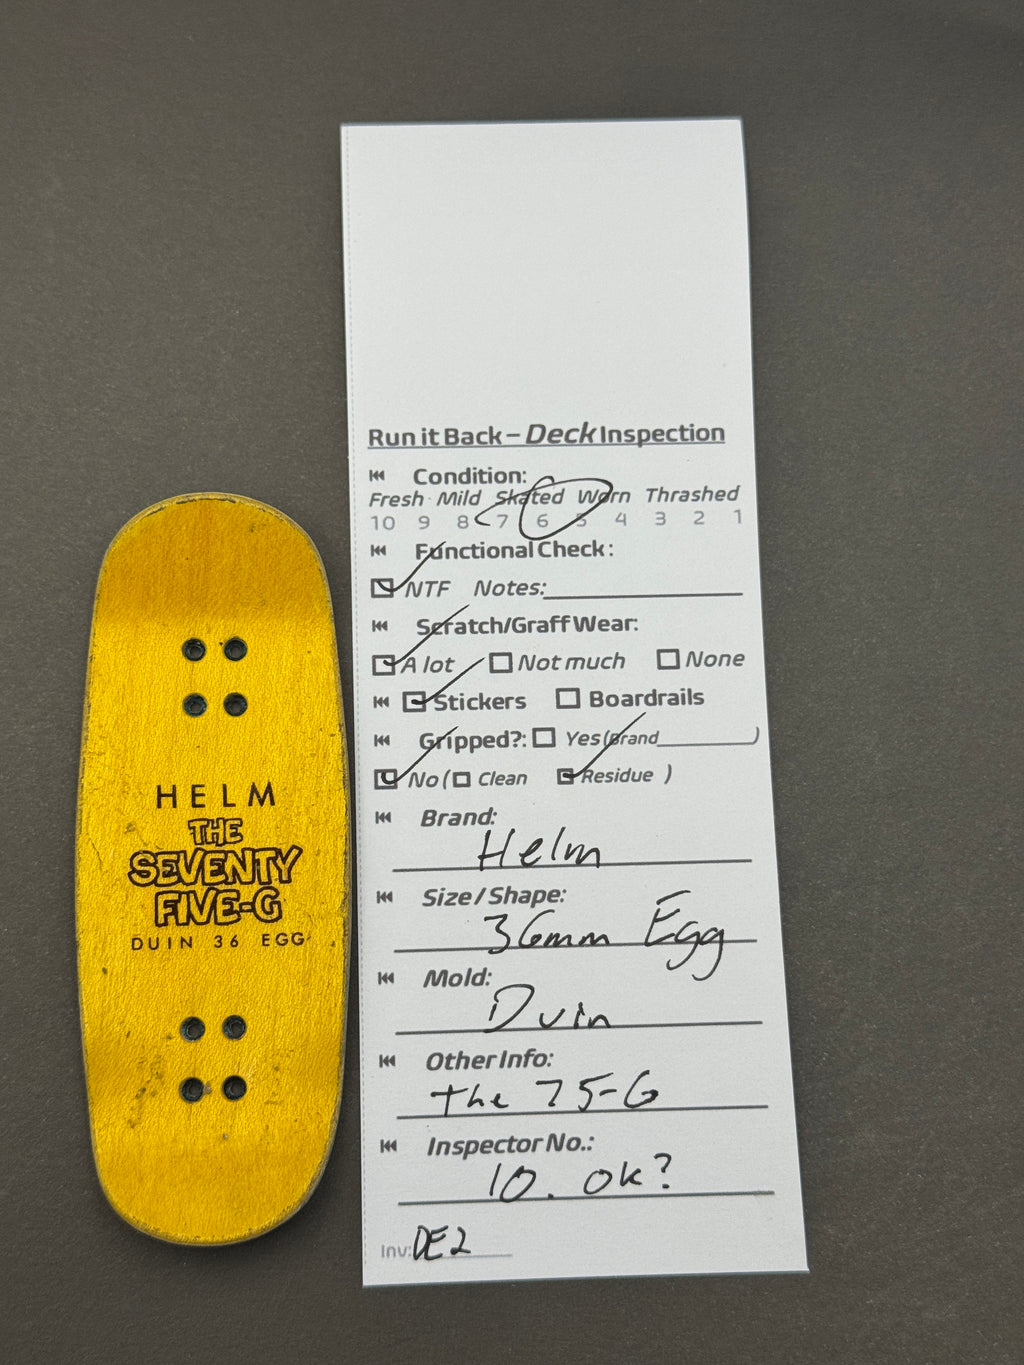 HELM
THE
SEVENTY
FIVE-G
DUIN 36 EGG
Run it Back – Deck Inspection
Condition:
Fresh Mild Skated Worn Thrashed
10 9 8 7 6 5 4 3 2 1
Functional Check:
NTF Notes:
Scratch/Graff Wear:
A lot Not much None
Stickers Boardrails
Gripped?: Yes (Brand )
No ( Clean Residue )
Brand:
Helm
Size / Shape:
36mm Egg
Mold:
Duin
Other Info:
the 75-G
Inspector No.:
10. ok?
Inv: DE2